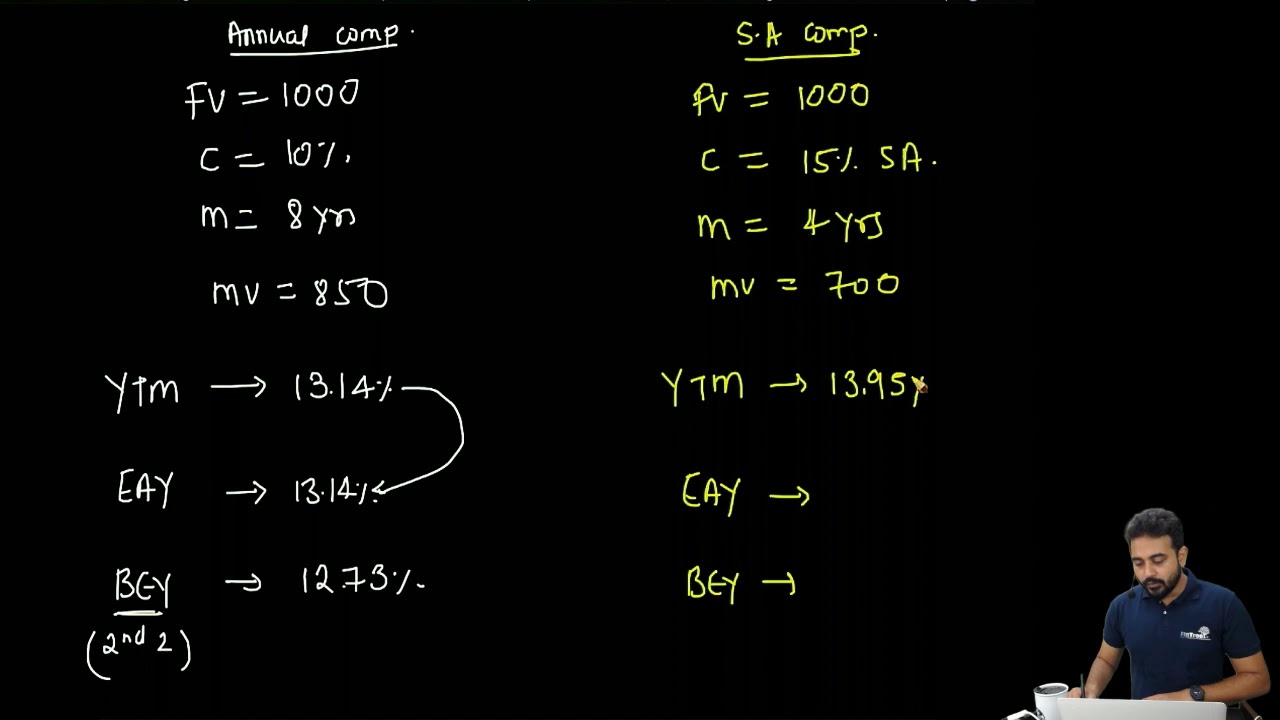 Annual comp.
FV = 1000
C = 10%.
m = 8 yrs
mv = 850
YTM → 13.14%
EAY → 13.14%.
BEY → 12.73%.
(2nd 2)
S.A comp.
FV = 1000
C = 15%. SA.
m = 4 yrs
mv = 700
YTM → 13.95%
EAY →
BEY →